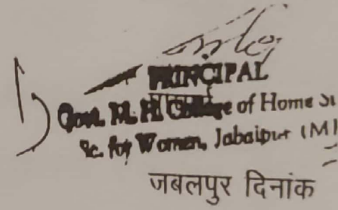 PRINCIPAL
Govt. M. H. College of Home Sc
Sc. for Women, Jabalpur (M)
जबलपुर दिनांक